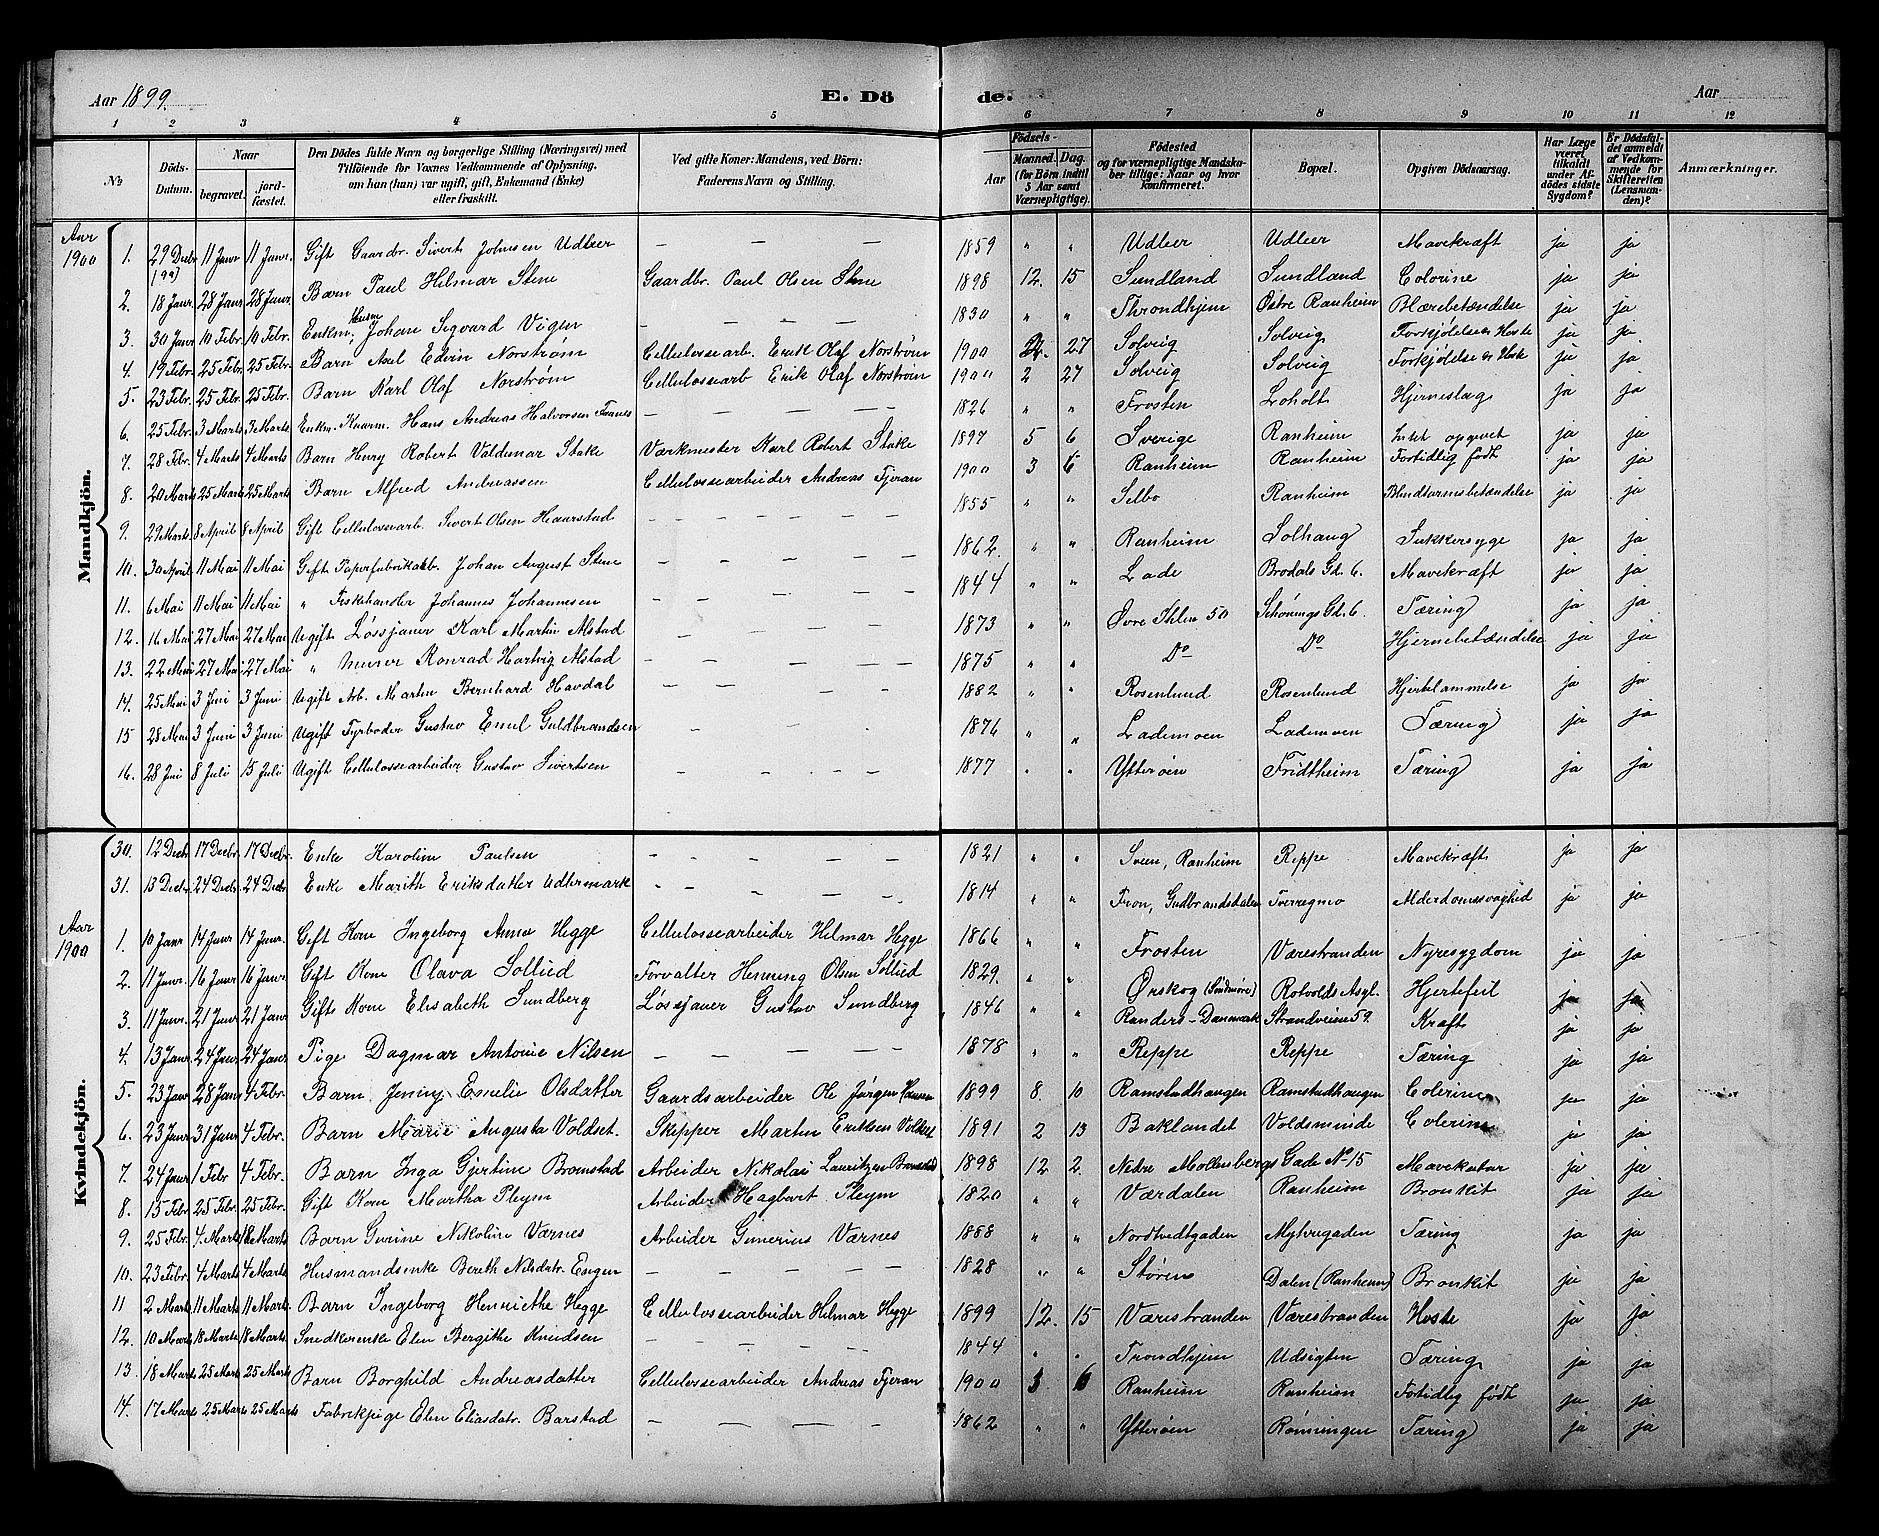 Aar 1899. E. Dö de. Aar
1 2 3 4 5 6 7 8 9 10 11 12
No Döds-Datum. Naar begravet. jord-fæstet. Den Dödes fulde Navn og borgerlige Stilling (Næringsvei) med Tilföiende for Voxnes Vedkommende af Oplysning, om han (hun) var ugift, gift, Enkemand (Enke) eller fraskilt. Ved gifte Koner: Mandens, ved Börn: Faderens Navn og Stilling. Födsels- Aar Maaned. Dag. (for Börn indtil 5 Aar samt Værnepligtige). Födested og for værnepligtige Mandska-ber tillige: Naar og hvor konfirmeret. Bopæl. Opgiven Dödsaarsag. Har Læge været tilkaldt under Af-dödes sidste Sygdom? Er Dödsfal-det anmeldt af Vedkom-mende for Skifteretten (Lensman-den)? Anmærkninger.
Mandkjön.
Aar 1900
1. 29 Decbr (99) 11 Janr 11 Janr. Gift Gaardbr. Sivert Johnsen Udleer — — — 1859 " " Udleer Udleer Mavekræft ja ja
2. 18 Janr. 28 Janr. 28 Janr. Barn Paul Hilmar Stene Gaardbr. Paul Olsen Stene 1898 12. 15 Sundland Sundland Colerine ja ja
3. 30 Janr 10 Febr. 10 Febr. Enkm. Husm Johan Sigvard Vigen — — — 1830 " " Throndhjem Østre Ranheim Blærebetændelse ja ja
4. 19 Febr. 25 Febr. 25 Febr. Barn Axel Edvin Norstrøm Cellulossearb. Erik Olaf Norstrøm 1900 2. 27 Solveig Solveig Forkjølelse Hoste ja ja
5. 23 Febr. 25 Febr. 25 Febr. Barn Karl Olaf Norstrøm Cellulossearb Erik Olaf Norstrøm 1900 2 27 Solveig Solveig Forkjølelse Hoste ja ja
6. 25 Febr. 3 Marts 3 Marts Enkm. Hans Andreas Halvorsen — — — — 1826 " " Frosten Loholt Hjerneslag ja ja
7. 28 Febr. 4 Marts 4 Marts Barn Henry Robert Valdemar Stake Værkmester Karl Robert Stake 1897 5 6 Sverige Ranheim Intet opgivet ja ja
8. 20 Marts 25 Marts 25 Marts Barn Alfred Andreassen Cellulossearbeider Andreas Fjeran 1900 3 6 Ranheim Ranheim Fortidlig født ja ja
9. 29 Marts 8 April 8 April Gift Cellulossearb. Sivert Olsen Haarstad — — — — 1855 " " Selbo Ranheim Blindtarmsbetændelse ja ja
10. 30 April 11 Mai 11 Mai Gift Papirfabrikarb. Johan August Stene — — — — 1862. " " Ranheim Solhaug Sukkersyge ja ja
11. 6 Mai 11 Mai 11 Mai " Fiskehandler Johannes Johannesen — — — — 1844 " " Lade Brodals Gd. 6. Mavekræft ja ja
12. 16 Mai 27 Mai 27 Mai Ugift Løssjauer Karl Martin Alstad — — — — 1873 " " Øvre Ihlen 50 Schønings Gd. 6. Tæring ja ja
13. 22 Mai 27 Mai 27 Mai " Murer Konrad Hartvig Alstad — — — — 1875 " " Do Do Hjernebetændelse ja ja
14. 25 Mai 3 Juni 3 Juni Ugift Arb. Martin Bernhard Havdal — — — — 1882 " " Rosenlund Rosenlund Hjertelammelse ja ja
15 28 Mai 3 Juni 3 Juni Ugift Fyrbøder Gustav Emil Guldbrandsen — — — 1876 " " Lademoen Lademoen Tæring ja ja
16. 28 Juni 8 Juli 15 Juli Ugift Cellulossearbeider Gustav Sivertsen — — — — 1877 " " Ytterøen Fridtheim Tæring ja ja
Kvindekjön.
30. 12 Decbr 17 Decbr. 17 Decbr. Enke Karoline Paulsen — — — — 1821 " " Sveen, Ranheim Reppe Mavekræft ja ja
31. 13 Decbr 24 Decbr. 24 Decbr Enke Marith Eriksdatter Udlermark — — — — 1814 " " Fron, Gudbrandsdalen Tverregmo Alderdomssvaghed ja ja
Aar 1900
1. 10 Janr 14 Janr 14 Janr. Gift Kone Ingeborg Anna Hegge Cellulossearbeider Hilmar Hegge 1866 " " Frosten Værestranden Nyresygdom ja ja
2. 11 Janr. 16 Janr 16 Janr. Gift Kone Olava Sollied Forvalter Henning Olsen Sollied 1829. " " Ørskog (Søndmøre) Rotvolds Asyl. Hjertefeil ja ja
3. 11 Janr. 21 Janr 21 Janr Gift Kone Elisabeth Sundberg Løssjauer Gustav Sundberg 1846 " " Randers - Danmark Strandveien 59. Kræft ja ja
4. 13 Janr 24 Janr 24 Janr Pige Dagmar Antonie Nilsen — — — — 1878 " " Reppe Reppe Tæring ja ja
5. 23 Janr 28 Janr 4 Febr. Barn Jenny Emelie Olsdatter Gaardsarbeider Ole Jørgen Hansen 1899 8. 10 Ramstadhaugen Ramstadhaugen Colerine ja ja
6. 23 Janr 31 Janr 4 Febr. Barn Marie Augusta Voldset. Skipper Martin Eriksen Voldset 1891 2 13 Baklandet Voldsminde Colerine ja ja
7. 24 Janr 1 Febr 4 Febr. Barn Inga Gjertine Bromstad Arbeider Nikolai Lauritzen Bromstad 1898 12 2. Nedre Mollenbergs Gade No 15 Mavekatar ja ja
8. 15 Febr 25 Febr. 25 Febr. Gift Kone Martha Pleym Arbeider Hagbart Pleym 1820 " " Værdalen Ranheim Bronkit ja ja
9. 25 Febr. 4 Marts Marts Barn Gurine Nikoline Værnes Arbeider Gunerius Værnes 1888 " " Nordtvedtgaden Myhregaden Tæring ja ja
10. 23 Febr. 4 Marts 4 Marts Husmandsenke Bereth Nilsdatr. Engen — — — — 1828 " " Støren Dalen (Ranheim) Bronkit ja ja
11 2 Marts 11 Marts 11 Marts. Barn Ingeborg Henriethe Hegge Cellulossearbeider Hilmar Hegge 1899 12. 15 Værestranden Værestranden Hoste ja ja
12. 10 Marts 18 Marts 18 Marts. Snedkerenke Elen Bergithe Knudsen — — — — 1844 " " Trondhjem Udsigten Tæring ja ja
13. 18 Marts 25 Marts 25 Marts Barn Borghild Andreasdatter Cellulossearbeider Andreas Fjeran 1900 3 6 Ranheim Ranheim Fortidlig født ja ja
14. 17 Marts 25 Marts 25 Marts Fabrikpige Elen Eliasdatr. Barstad — — — — 1862 " " Ytterøen Rønningen Tæring ja ja